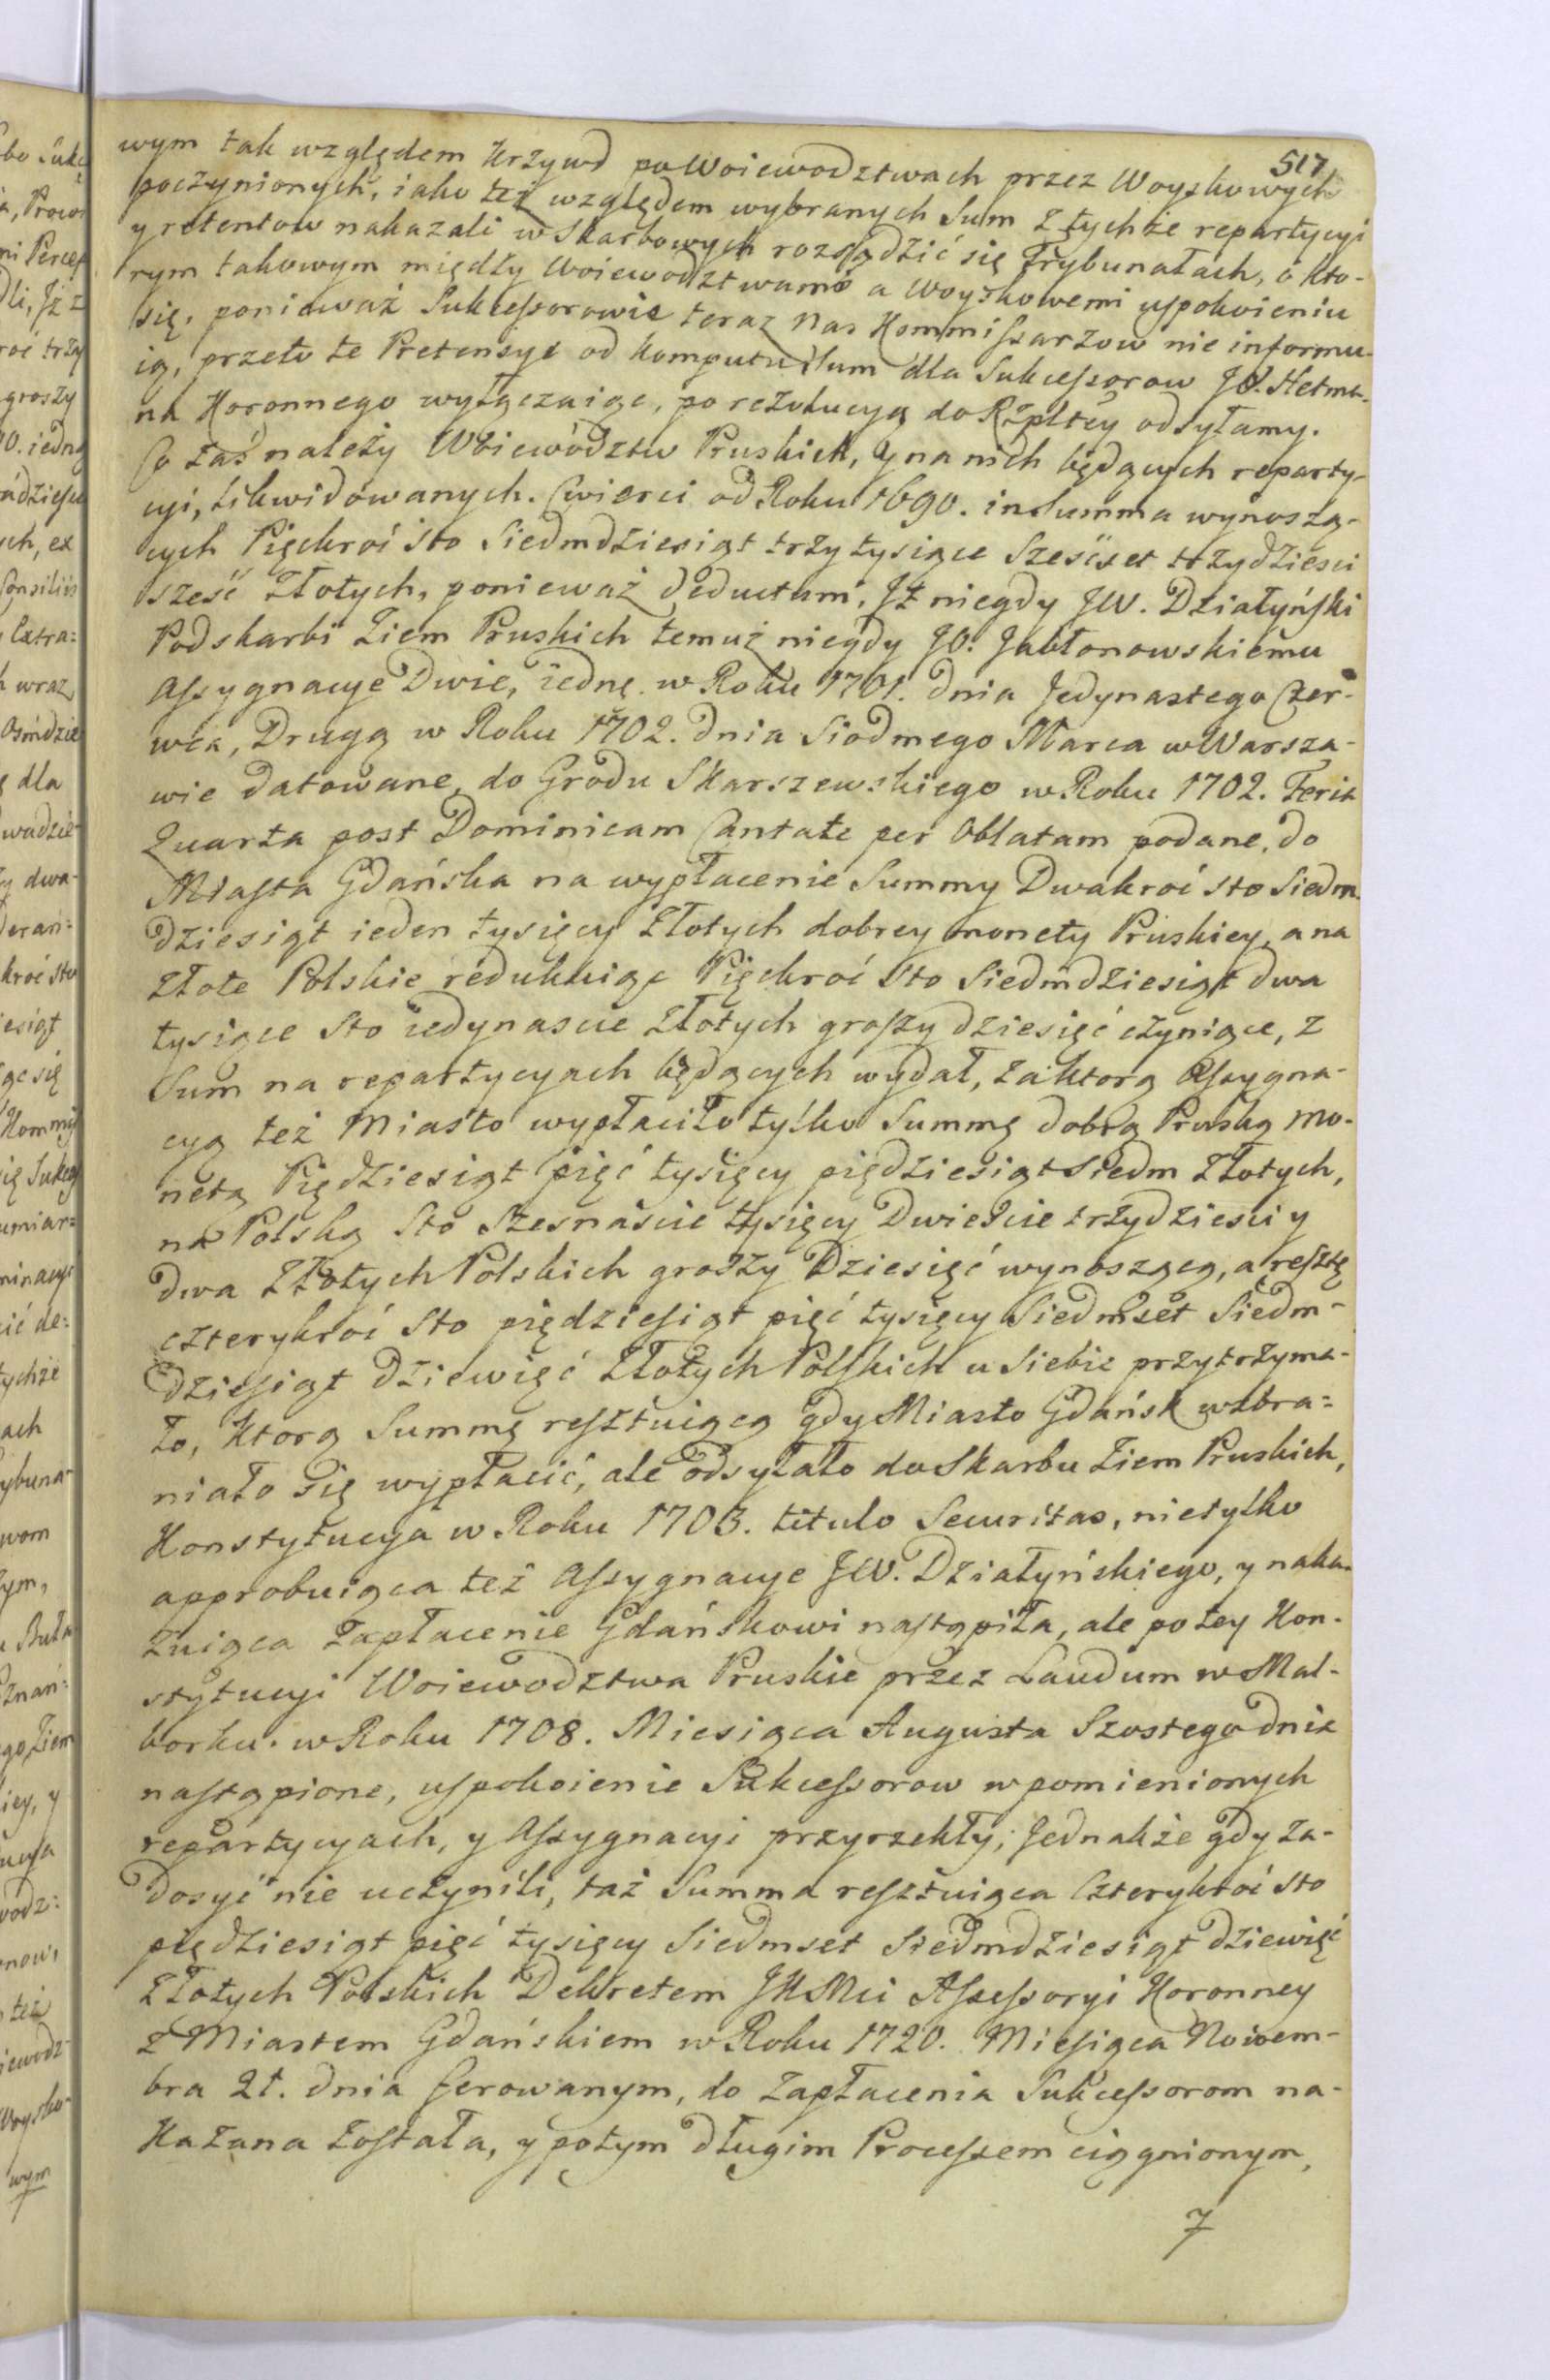 517
wym tak względem Krzywd po Woiewodztwach przez Woyskowych
poczynionych, iako też względem wybranych Sum z tychże repartycyi
y retentow nakazali w Skarbowych rozsądzić się Trybunałach, o kto-
rym takowym między Woiewodztwami a Woyskowemi uspokoieniu
się, ponieważ Sukcessorowie teraz Nas Kommissarzow nie informu-
ią, przeto te Pretensye od Komputu Sum dla Sukcessorow JO. Hetma-
na Koronnego wyłączaiąc, po rezolucyą do Rzpltey odsyłamy.
Co zaś należy Woiewództw Pruskich, y na nich będących reparty-
cyi, likwidowanych. Cwierci od Roku 1690. in Summa wynoszą-
cych Pięckroć sto Siedmdziesiąt trzy tysiące Sześćset trzydziesci
sześć Złotych, ponieważ deductum, Jż niegdy JW. Działyński
Podskarbi Ziem Pruskich temuż niegdy JO. Jabłonowskiemu
Assygnacye Dwie, iednę w Roku 1701. dnia Jedynastego Czer-
wca, Drugą w Roku 1702. dnia Siodmego Marca w Warsza-
wie datowane, do Grodu Skarszewskiego w Roku 1702. Feria
Quarta post Dominicam Cantate per Oblatam podane, do
Miasta Gdańska na wypłacenie Summy Dwakroć sto Siedm-
dziesiąt ieden tysięcy Złotych dobrey monety Pruskiey, a na
Złote Polskie redukuiąc Pięckroć Sto Siedmdziesiąt dwa
tysiące Sto iedynascie Złotych groszy dziesięć czyniące, z
Sum na repartycyach będących wydał, za ktorą Assygna-
cyą też Miasto wypłaciło tylko Summę dobrą Pruską mo-
netą Pięćdziesiąt pięć tysięcy pięćdziesiąt Siedm Złotych,
na Polską Sto Szesnaście tysięcy Dwieście trzydziesci y
dwa Złotych Polskich groszy Dziesięć wynoszącą, a resztę
czterykroć Sto pięćdziesiąt pięć tysięcy Siedmset Siedm-
dziesiąt dziewięć Złotych Polskich u Siebie przytrzyma-
ło, Ktorą Summę resztuiącą gdy Miasto Gdańsk wzbra=
niało się wypłacić, ale odsyłało do Skarbu Ziem Pruskich,
Konstytucya w Roku 1703. titulo Securitas, nietylko
approbuiąca też Assygnacye JW. Działyńskiego, y naka-
zuiąca Zapłacenie Gdańskowi nastąpiła, ale po tey Kon-
stytucyi Woiewodztwa Pruskie przez Laudum w Mal-
borku. w Roku 1708. Miesiąca Augusta Szostego dnia
nastąpione, uspokoienie Sukcessorow wpomienionych
repartycyach, y Assygnacyi przyrzekły; Jednakże gdy Za-
dosyć nie uczynili, taż Summa resztuiąca Czterykroć sto
pięćdziesiąt pięć tysięcy Siedmset Siedmdziesiąt dziewięć
Złotych Polskich Dekretem JKMci Assessoryi Koronney
z Miastem Gdańskiem w Roku 1720. Miesiąca Nowem-
bra 21. dnia ferowanym, do Zapłacenia Sukcessorom na-
Kazana Została, y potym długim Processem ciągnionym,